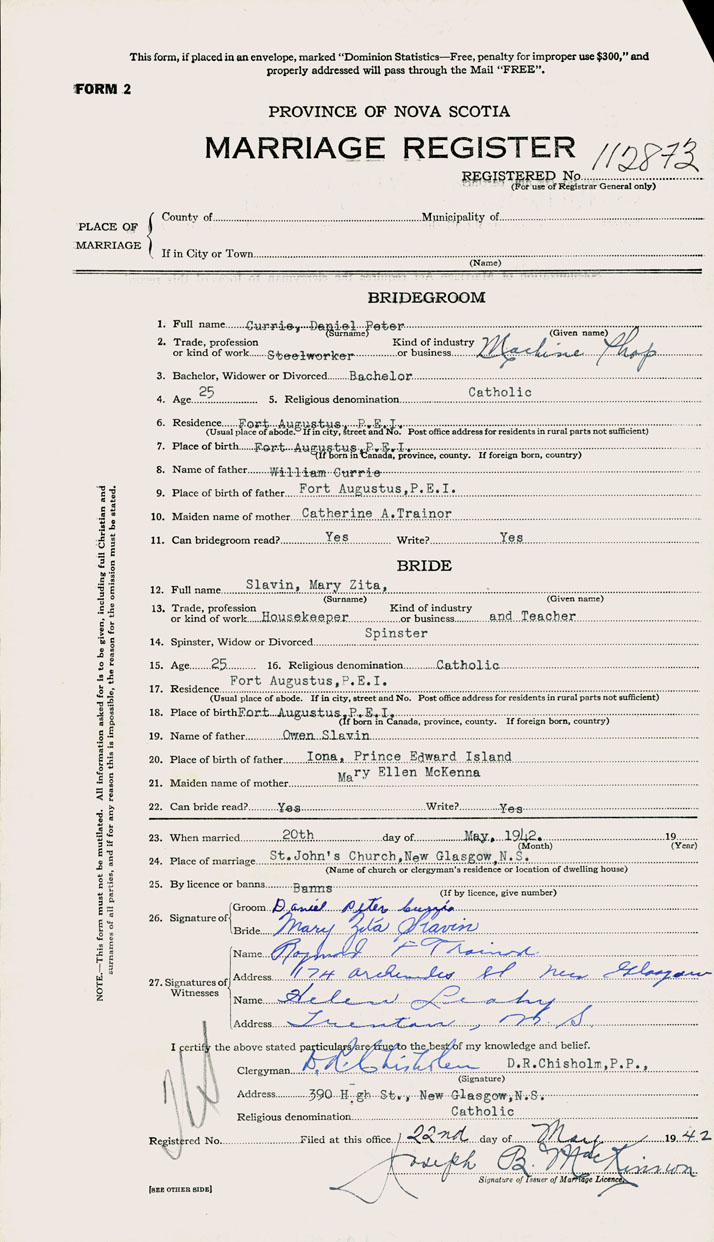 This form, if placed in an envelope, marked "Dominion Statistics—Free, penalty for improper use $300," and
properly addressed will pass through the Mail "FREE".
FORM 2
PROVINCE OF NOVA SCOTIA
MARRIAGE REGISTER
REGISTERED No. 112873
(For use of Registrar General only)
PLACE OF MARRIAGE
County of Municipality of
If in City or Town
(Name)
BRIDEGROOM
1. Full name Currie, Daniel Peter
(Surname) (Given name)
2. Trade, profession or kind of work Steelworker Kind of industry or business Machine Shop
3. Bachelor, Widower or Divorced Bachelor
4. Age 25 5. Religious denomination Catholic
6. Residence Fort Augustus, P.E.I.
(Usual place of abode. If in city, street and No. Post office address for residents in rural parts not sufficient)
7. Place of birth Fort Augustus,P.E.I.
(If born in Canada, province, county. If foreign born, country)
8. Name of father William Currie
9. Place of birth of father Fort Augustus,P.E.I.
10. Maiden name of mother Catherine A.Trainor
11. Can bridegroom read? Yes Write? Yes
BRIDE
12. Full name Slavin, Mary Zita,
(Surname) (Given name)
13. Trade, profession or kind of work Housekeeper Kind of industry or business and Teacher
14. Spinster, Widow or Divorced Spinster
15. Age 25 16. Religious denomination Catholic
17. Residence Fort Augustus,P.E.I.
(Usual place of abode. If in city, street and No. Post office address for residents in rural parts not sufficient)
18. Place of birth Fort Augustus,P.E.I.
(If born in Canada, province, county. If foreign born, country)
19. Name of father Owen Slavin
20. Place of birth of father Iona, Prince Edward Island
21. Maiden name of mother Mary Ellen McKenna
22. Can bride read? Yes Write? Yes
23. When married 20th day of May, 1942. 19
(Month) (Year)
24. Place of marriage St.John's Church,New Glasgow,N.S.
(Name of church or clergyman's residence or location of dwelling house)
25. By licence or banns Banns
(If by licence, give number)
26. Signature of
Groom Daniel Peter Currie
Bride Mary Zita Slavin
27. Signatures of Witnesses
Name Raymond F Trainor
Address 1174 Archemedes St New Glasgow
Name Helen Leahy
Address Trenton, N S.
I certify the above stated particulars are true to the best of my knowledge and belief.
Clergyman D.R.Chisholm D.R.Chisholm,P.P.,
(Signature)
Address 390 High St., New Glasgow,N.S.
Religious denomination Catholic
Registered No. Filed at this office 22nd day of May 1942
Joseph B. MacKinnon
Signature of Issuer of Marriage Licence.
[SEE OTHER SIDE]
NOTE.—This form must not be mutilated. All information asked for is to be given, including full Christian and
surnames of all parties, and if for any reason this is impossible, the reason for the omission must be stated.